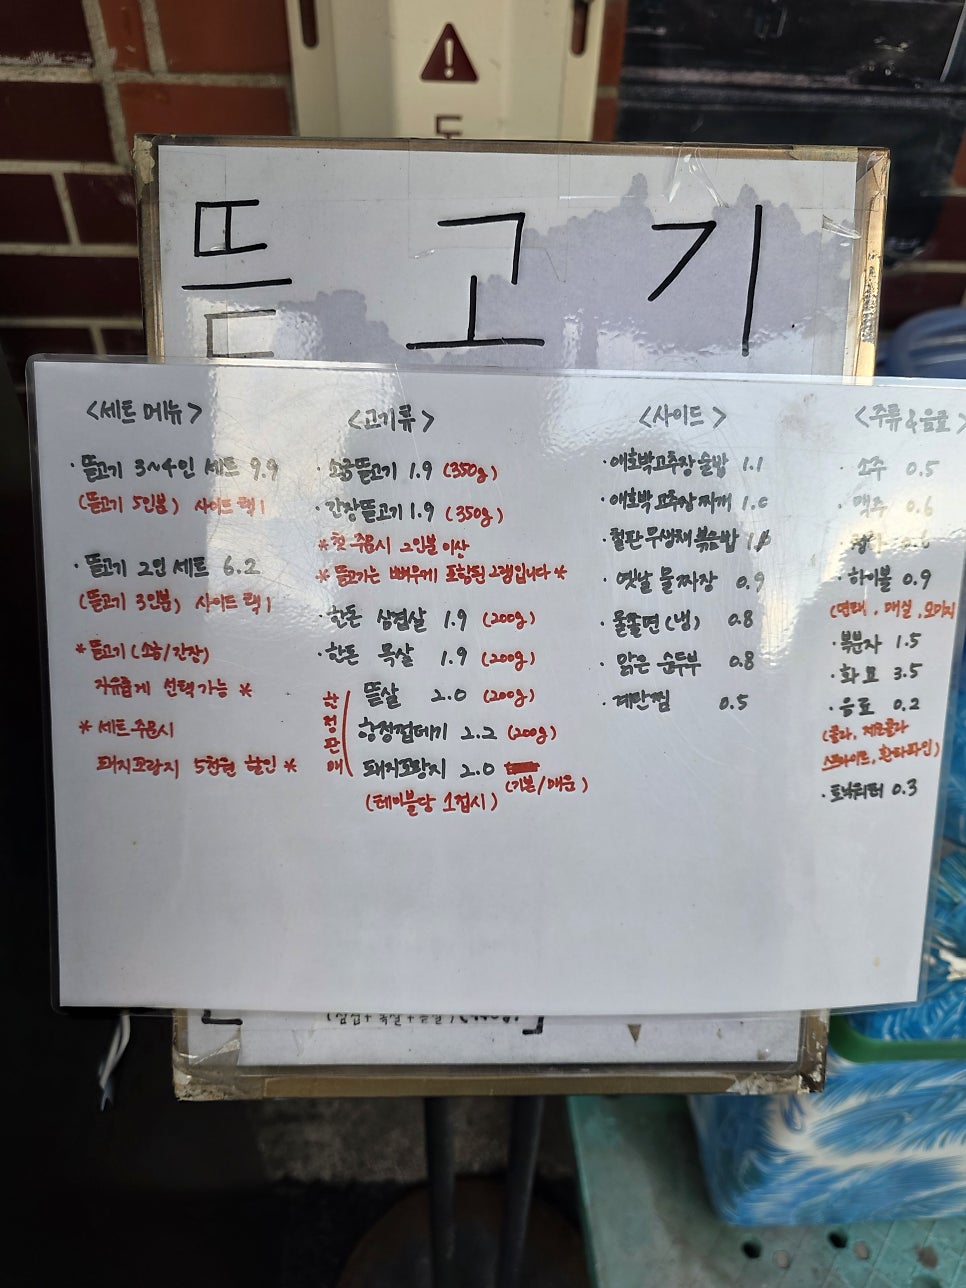 뜸 고 기
<세트 메뉴>
· 뜸고기 3~4인 세트 9.9
(뜸고기 5인분) 사이드 택1
· 뜸고기 2인 세트 6.2
(뜸고기 3인분) 사이드 택1
* 뜸고기 (소금/간장)
자유롭게 선택가능 *
* 세트 주문시
돼지꼬랑지 5천원 할인 *
<고기류>
· 소금뜸고기 1.9 (350g)
· 간장뜸고기 1.9 (350g)
* 첫 주문시 2인분 이상
* 뜸고기는 뼈무게 포함된 그램입니다 *
· 한돈 삼겹살 1.9 (200g)
· 한돈 목살 1.9 (200g)
한정판매
뜸살 2.0 (200g)
항정껍데기 2.2 (200g)
돼지꼬랑지 2.0
(기본/매운)
(테이블당 1접시)
<사이드>
· 애호박고추장술밥 1.1
· 애호박고추장찌개 1.0
· 철판무생채볶음밥
· 옛날 물짜장 0.9
· 물쫄면 (냉) 0.8
· 맑은 순두부 0.8
· 계란찜 0.5
<주류&음료>
· 소주 0.5
· 맥주 0.6
· 하이볼 0.9
· 복분자 1.5
· 화요 3.5
· 음료 0.2
(콜라, 제로콜라
스프라이트, 환타파인)
· 토닉워터 0.3